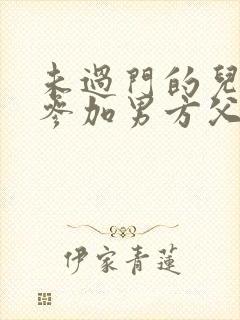 未過門的兒
參加男方父
伊家青蓮